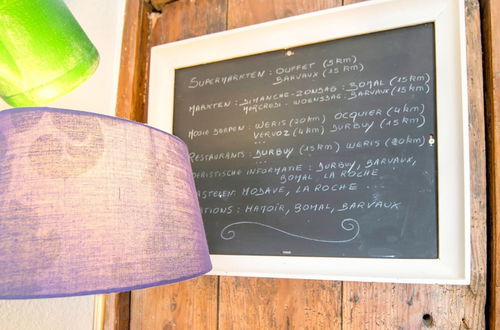 SUPERMARKTEN : OUFFET (5 km)
BARVAUX (15 km)
MARKTEN : DIMANCHE-ZONDAG : BOMAL (15 km)
MERCREDI - WOENSDAG : BARVAUX (15 km)
MOOIE DORPEN : WERIS (20 km) OCQUIER (4 km)
VERVOZ (4 km) DURBUY (15 km)
...
RESTAURANTS : DURBUY (15 km) WERIS (20 km)
...
RISTISCHE INFORMATIE : DURBUY, BARVAUX,
BOMAL LA ROCHE
ASTELEN : MODAVE, LA ROCHE ...
TATIONS : HAMOIR, BOMAL, BARVAUX